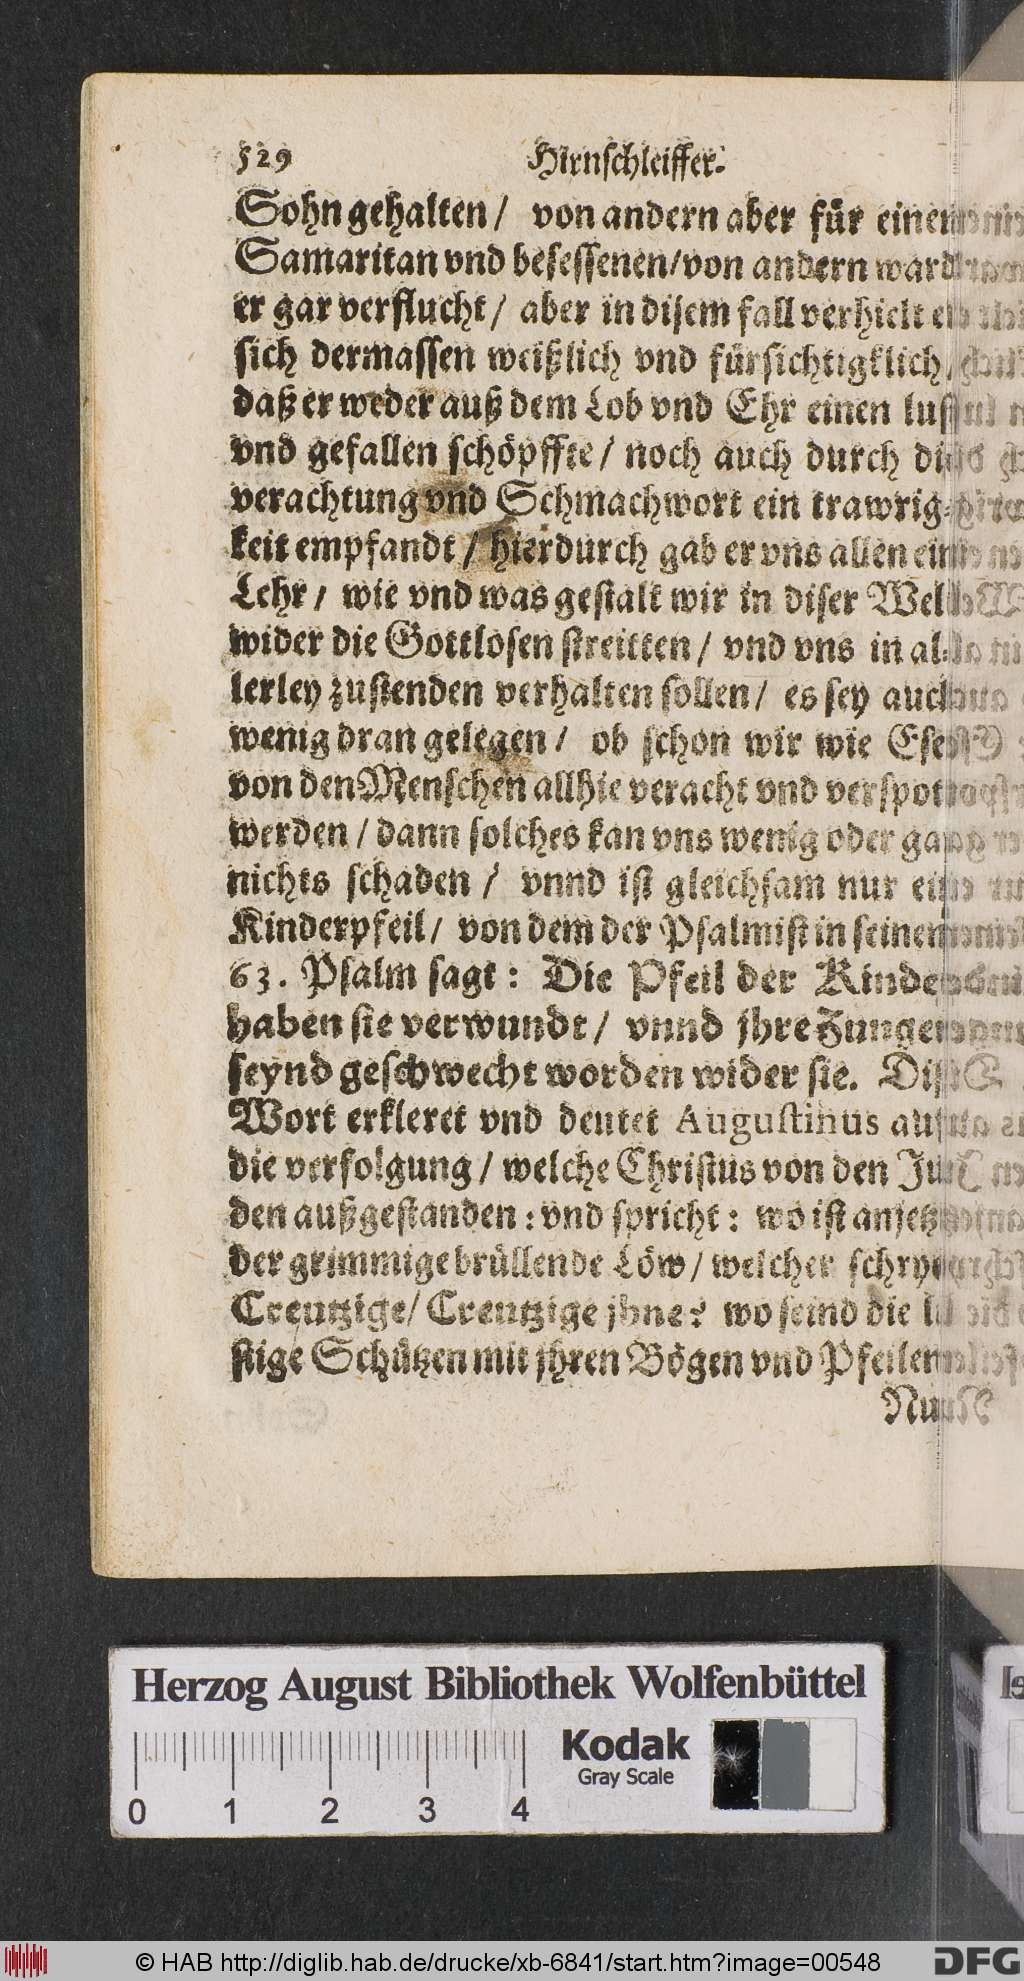 529 Hirnschleiffer.
Sohn gehalten / von andern aber für einen
Samaritan vnd besessenen / von andern ward
er gar verflucht / aber in disem fall verhielt er
sich dermassen weißlich vnd fürsichtigklich,
daß er weder auß dem Lob vnd Ehr einen lust
vnd gefallen schöpffte / noch auch durch dise
verachtung vnd Schmachwort ein trawrig-
keit empfandt / hierdurch gab er vns allen ein
Lehr / wie vnd was gestalt wir in diser Welt
wider die Gottlosen streitten / vnd vns in al-
lerley zustenden verhalten sollen / es sey auch
wenig dran gelegen / ob schon wir wie Esel
von den Menschen allhie veracht vnd verspot
werden / dann solches kan vns wenig oder gar
nichts schaden / vnnd ist gleichsam nur ein
Kinderpfeil / von dem der Psalmist in seinem
63. Psalm sagt : Die Pfeil der Kinder
haben sie verwundt / vnnd jhre Zungen
seynd geschwecht worden wider sie. Dise
Wort erkleret vnd deutet Augustinus auf
die verfolgung / welche Christus von den Ju
den außgestanden : vnd spricht : wo ist anjetzt
der grimmige brüllende Löw / welcher schrye
Creutzige / Creutzige jhne? wo seind die li
stige Schützen mit jhren Bögen vnd Pfeilen
Nun
Herzog August Bibliothek Wolfenbüttel
Kodak
Gray Scale
0 1 2 3 4
© HAB http://diglib.hab.de/drucke/xb-6841/start.htm?image=00548
DFG